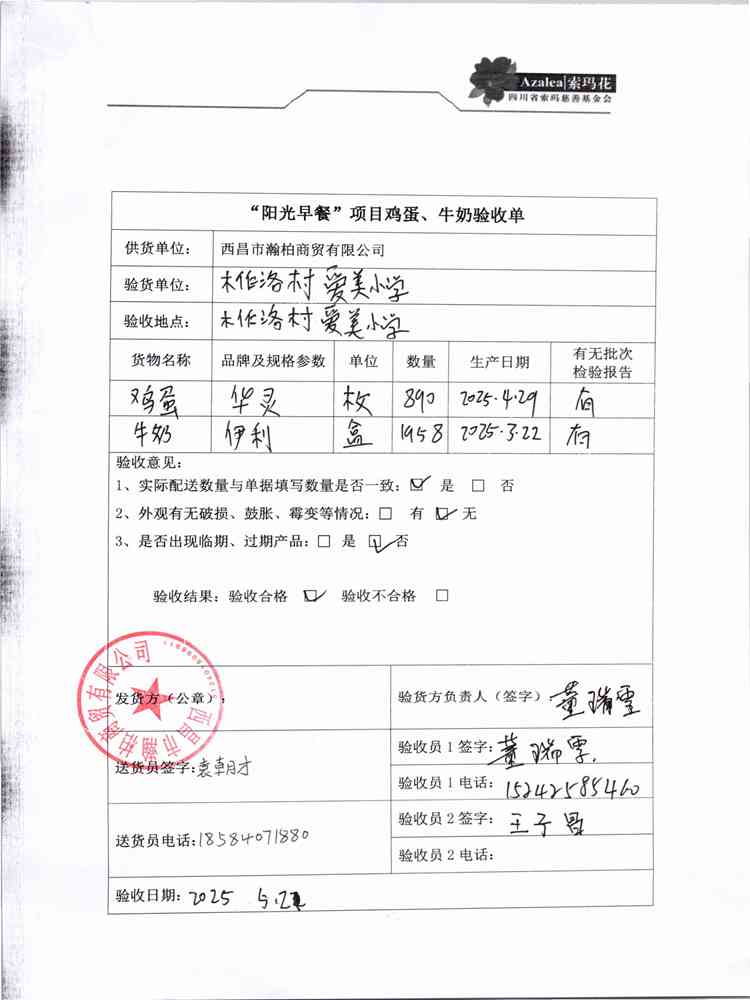 Azalea|索玛花
四川省索玛慈善基金会
“阳光早餐”项目鸡蛋、牛奶验收单
供货单位： 西昌市瀚柏商贸有限公司
验货单位： 木作洛村爱美小学
验收地点： 木作洛村爱美小学
货物名称 品牌及规格参数 单位 数量 生产日期 有无批次检验报告
鸡蛋 华灵 枚 890 2025.4.29 有
牛奶 伊利 盒 1958 2025.3.22 有
验收意见：
1、实际配送数量与单据填写数量是否一致：☑ 是 □ 否
2、外观有无破损、鼓胀、霉变等情况：□ 有 ☑ 无
3、是否出现临期、过期产品：□ 是 ☑ 否
验收结果：验收合格 ☑ 验收不合格 □
西昌市瀚柏商贸有限公司
发货方（公章）：
验货方负责人（签字）：董瑞雪
送货员签字：袁朝才
验收员1签字：董瑞雪
验收员1电话：15242585460
送货员电话：18584071880
验收员2签字：王子
验收员2电话：
验收日期：2025